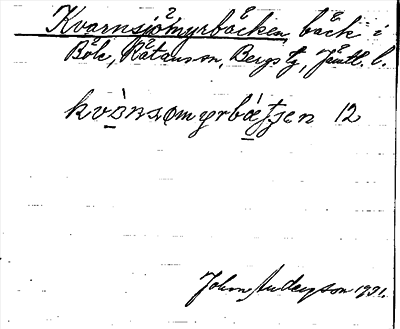 Kvarnsjömyrbäcken, bäck i
Böle, Rätansn, Bergs tg, Jämtl. l.
kvànsømyrbæ̀tjen 12
John Anderson 1931.